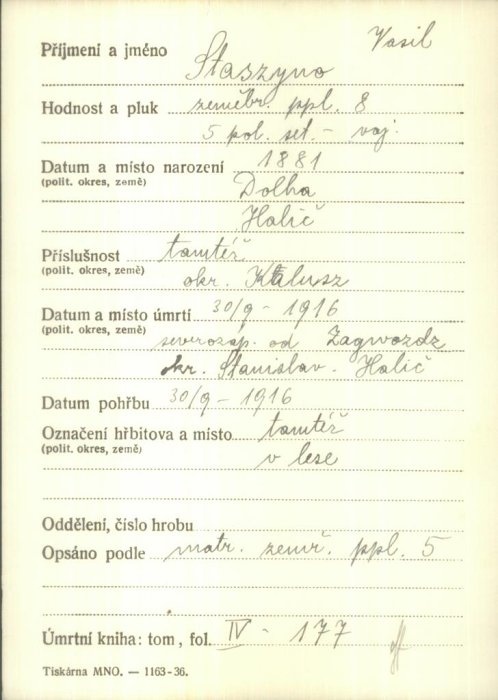 Vasil
Příjmení a jméno Staszyno
Hodnost a pluk zeměbr. ppl. 8
5 pol. set. - voj.
Datum a místo narození 1881
(polit. okres, země) Dolha
Halič
Příslušnost tamtéž
(polit. okres, země) okr. Kalusz
Datum a místo úmrtí 30/9 - 1916
(polit. okres, země) severozáp. od Zagwozdz
okr. Stanislav - Halič
Datum pohřbu 30/9 - 1916
Označení hřbitova a místo tamtéž
(polit. okres, země) v lese
Oddělení, číslo hrobu
Opsáno podle matr. zemř. ppl. 5
Úmrtní kniha: tom, fol. IV - 177
Tiskárna MNO. — 1163-36.